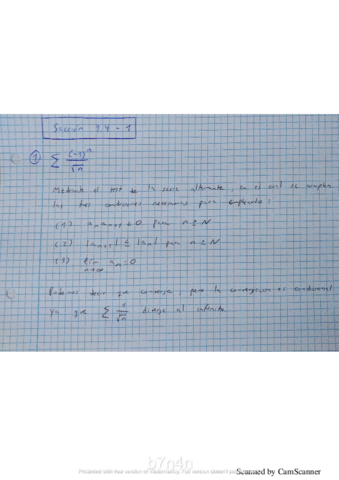 Sección 9.4 - 1
① ∑ (-1)^n / √n
Mediante el test de la serie alternante, en el cual se cumplen
las tres condiciones necesarias para
(1) a_n a_{n+1} ≤ 0 para n ≥ N
(2) |a_{n+1}| ≤ |a_n| para n ≥ N
(3) lim_{n→∞} a_n = 0
Podemos decir que converge, pero la convergencia es condicional
ya que ∑ 1/√n diverge al infinito.
b7n4n
Scanned by CamScanner